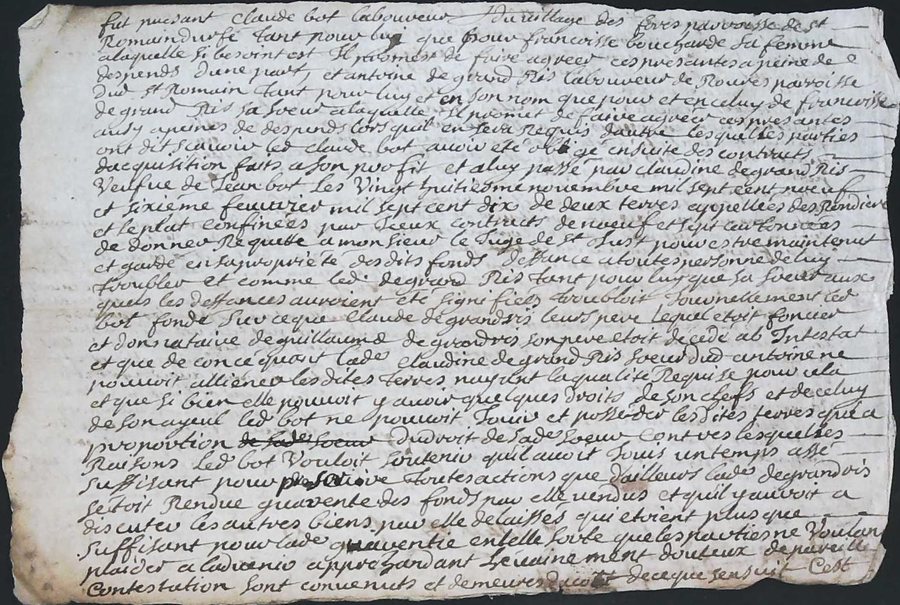 fut present Claude bot laboureur du village des fores parroisse de st
Romain durfé tant pour luy que pour francoisse bouchande sa femme
alaquelle si besoint est Il promest de faire agreer ces presantes a peine de
despends dune part, et antoine de grand Ris laboureur de Roures parroisse
Dud st Romain tant pour luy et en son nom que pour et en celuy de francoise
de grand Ris sa soeur alaquelle Il promet de faire agreer ces presantes
aussy a peines de despends lors quil en sera Requis dautre lesquelles parties
ont dit scavoir led Claude bot avoir été obligé ensuite des contrats
dacquisition faits a son proffit et a luy passé par claudine de grand Ris
Veufue de Jean bot les Vingt huitiesme novembre mil sept cent noeuf
et sixieme feuvrier mil sept cent dix de deux terres appellées des
et le plat confinées par Iceux contrats de noeuf et sept cartonnées
de donner Requette a monsieur le Juge de st Just pour estre maintenut
et gardé en sa propriete des dits fonds deffance a toutes personne de luy
troubler et comme led. de grand Ris tant pour luy que sa soeur aux
quels les deffances auroient été signifiées troubloit Journellement led
bot fondé sur ce que Claude de grandris leurs pere lequel etoit
et donnataire de guillaume de grandris son pere etoit decedé ab Intestat
et que de consequant lade claudine de grand Ris soeur dud antoine ne
pouvoit alliener les dites terres, nayant la qualité Requise pour cela
et que si bien elle pouvoit y avoir quelques droits de son chefs et de celuy
de son ayeul led bot ne pouvoit Jouir et posseder les dites terres que a
proportion de sade soeur du droit de sade soeur Contres lesquelles
Raisons led bot Vouloit soutenir quil avoit Jouis un temps assé
suffisant pour prescrire toutes actions que dailleurs lade de grandris
setoit Rendue garente des fonds par elle vendus et quil y auroit a
discuter les autres biens par elle delaissés qui etoient plus que
suffisant pour lade garentie en telle sorte que les parties ne Voulan
plaider a ladvenir apprehendant Levainement douteux de pareille
Contestation sont convenuts et demeures dacort de ce que sensuit Cest